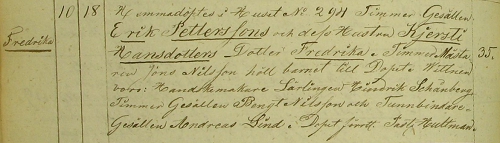 10 18 Hemmadöptes i Huset No 294 Timmer Gesällen
Erik Pettersfons och defs Hustru Kjersti
Fredrika Hansdotters Dotter Fredrika. Timmer Mästa= 35.
ren Jöns Nilsfon höll barnet till Dopet. Wittnen
voro: Handskmakare Lärlingen Hindrik Schönberg,
Timmer Gesällen Bengt Nilsfon och Tunnbindare=
Gesällen Andreas Lind. Dopet förrtt: Past: Hultman.